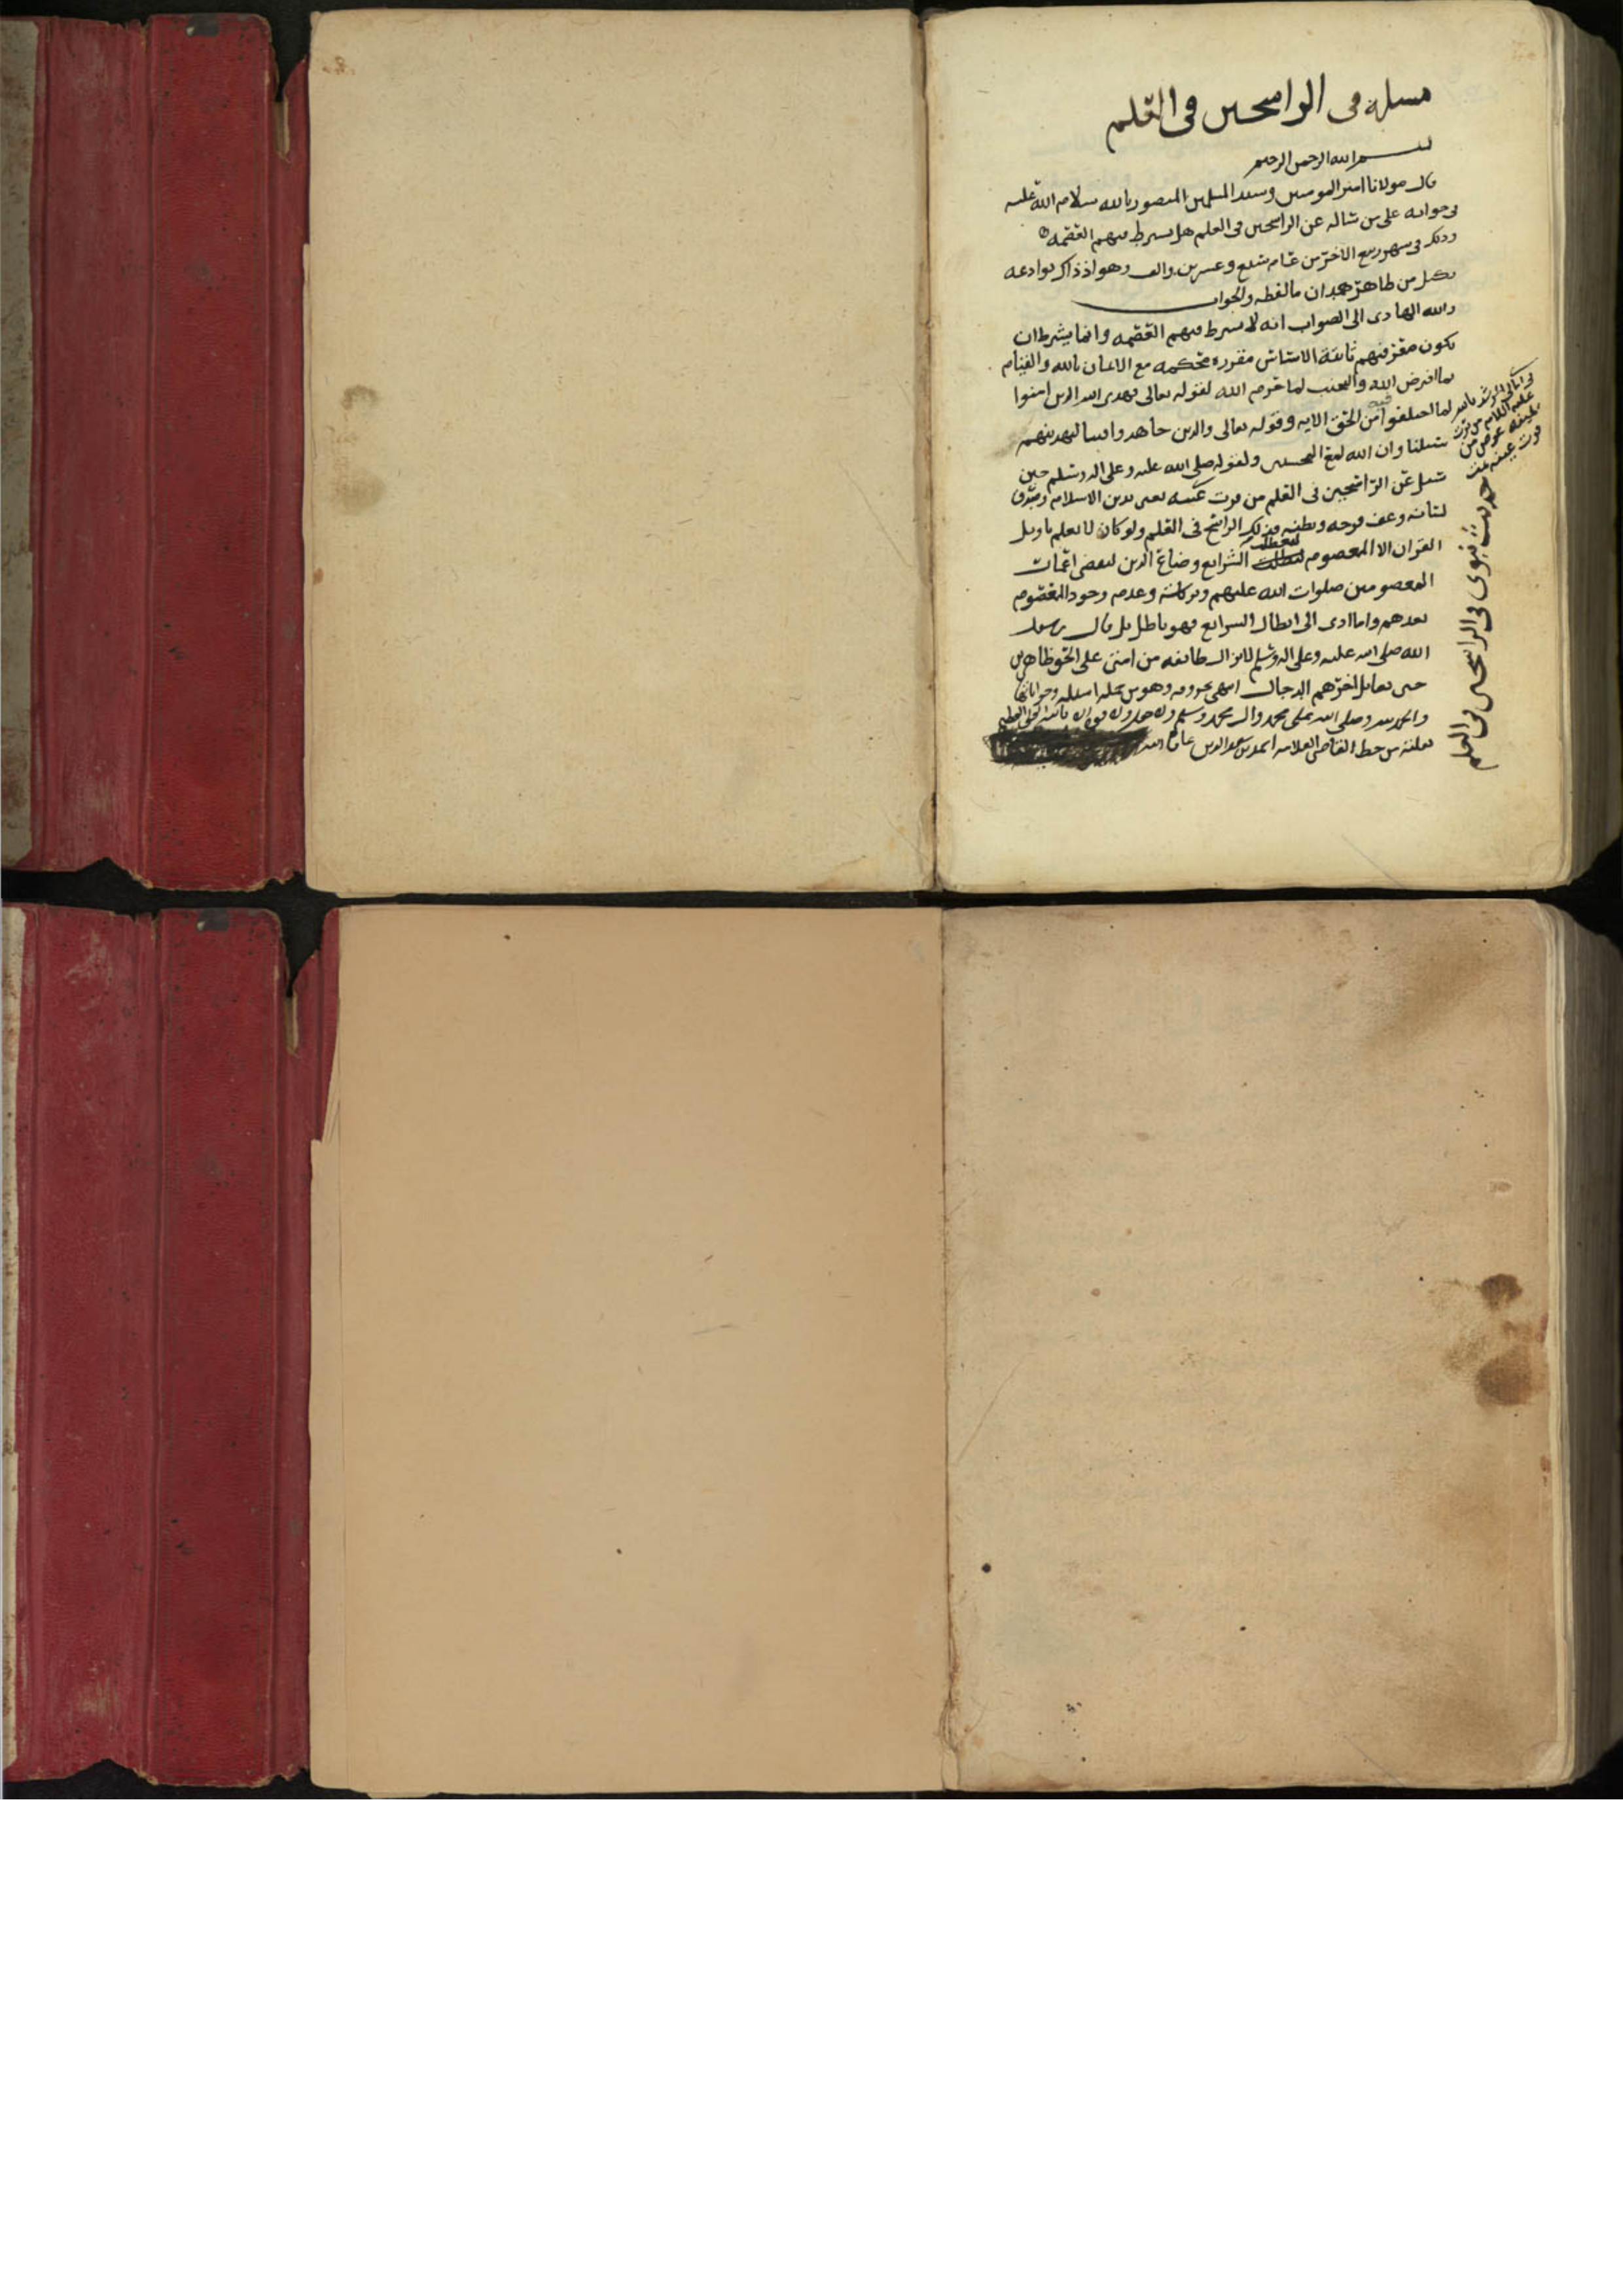 مسله فى الراسخين فى العلم
بسم الله الرحمن الرحيم
قال مولانا امير المومنين وسيد المسلمين المنصور بالله سلام الله عليه
فى جوابه على من ساله عن الراسخين فى العلم هل يشرط فيهم العصمه
وذلك فى شهر ربيع الاخر من عام تسع وعشرين والف وهو اذ ذاك بوادعه
من ظاهر همدان مالفظه والجواب
والله الهادى الى الصواب انه لا يشرط فيهم العصمه وانما يشرط ان
يكون معرفتهم ثابتة الاساس مقرره محكمه مع الايمان بالله والقيام
بما افرض الله والتجنب لما حرم الله لقوله تعالى فهدى الله الذين امنوا
لما اختلفوا فيه من الحق الايه وقوله تعالى والذين جاهدوا فينا لنهدينهم
سبلنا وان الله لمع المحسنين ولقوله صلى الله عليه وعلى اله وسلم حين
سئل عن الراسخين فى العلم من قرت عينه يعنى بدين الاسلام وصدق
لسانه وعف فرجه وبطنه فذلك الراسخ فى العلم ولو كان لا يعلم تاويل
القران الا المعصوم لتعطلت الشرايع وضاع الدين لبعض اعمات
المعصومين صلوات الله عليهم وبركاته وعدم وجود المعصوم
بعدهم وما ادى الى ابطال الشرايع فهو باطل بل قال رسول
الله صلى الله عليه وعلى اله وسلم لا يزال طائفه من امتى على الحق ظاهرين
حتى يقاتل اخرهم الدجال انتهى بحروفه وهو من جمله اسئله وجواباتها
والحمد لله وصلى الله على محمد وال محمد وسلم ولا حول ولا قوه الا بالله العلى العظيم
نقلته من خط القاضى العلامه احمد بن سعد الدين عافاه الله
حديث نبوى فى الراسخين فى العلم